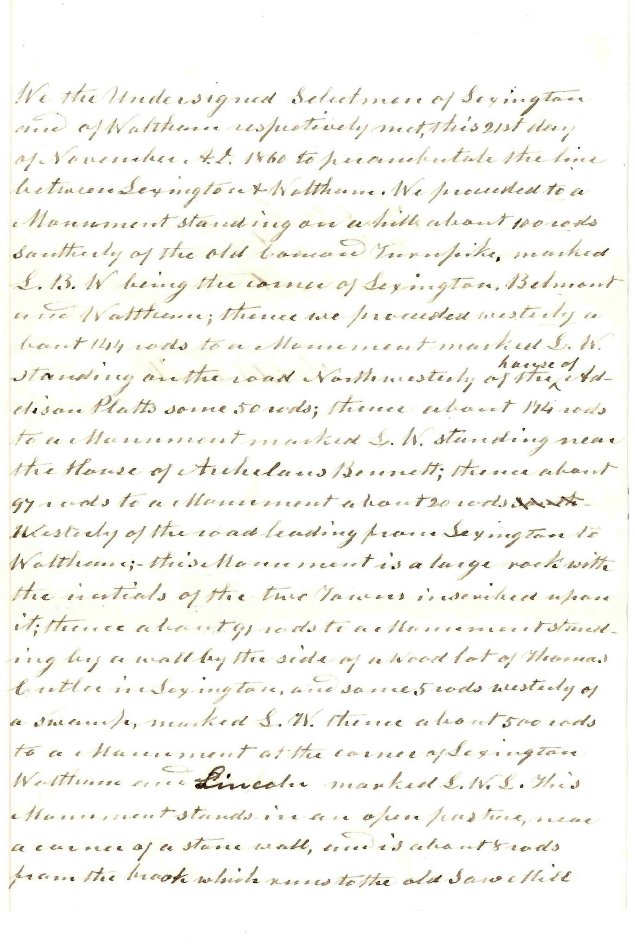 We the Undersigned Selectmen of Lexington
and of Waltham respectively met, this 21st day
of November A.D. 1860 to perambulate the line
between Lexington & Waltham. We proceeded to a
Monument standing on a hill about 100 rods
southerly of the old Concord Turnpike, marked
L. B. W being the corner of Lexington, Belmont
and Waltham; thence we proceeded westerly a
bout 144 rods to a Monument marked L. W.
standing on the road Northwesterly of the house of Ad-
dison Platts some 50 rods; thence about 174 rods
to a Monument marked L. W. standing near
the House of Archelaus Bennett; thence about
97 rods to a Monument about 20 rods
Westerly of the road leading from Lexington to
Waltham;- this Monument is a large rock with
the inetials of the two Towns inscribed upon
it; thence about 91 rods to a Monument stand-
ing by a wall by the side of a Wood lot of Thomas
Cutler in Lexington, and some 5 rods westerly of
a swamp, marked L. W. thence about 500 rods
to a Monument at the corner of Lexington
Waltham and Lincoln marked L. W. L. This
Monument stands in an open pasture, near
a corner of a stone wall, and is about 8 rods
from the brook which runs to the old Saw Mill